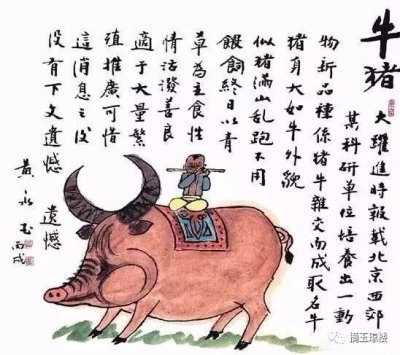 牛猪
大躍進時報載北京西郊
某科研單位培養出一動
物新品種係猪牛雜交而成取名牛
猪身大如牛外貌
似猪滿山亂跑不用
餵飼終日以青
草為主食性
情活潑善良
適于大量繁
殖推廣可惜
這消息之後
沒有下文遺憾 遺憾
黃永玉 丙戌